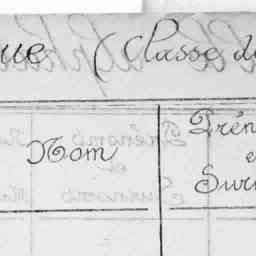 ue (Classe d
Nom
Prén
e
Surn